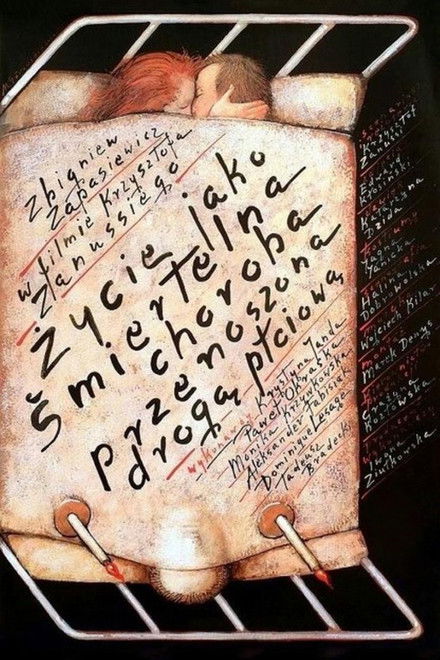 Zbigniew
Zapasiewicz
w filmie Krzysztofa
Zanussiego
Życie jako
śmiertelna
choroba
przenoszona
drogą płciową
wykonawcy Krystyna Janda
Paweł Okraska
Monika Krzywkowska
Aleksander Fabisiak
Dominique Lesage
Tadeusz
Bradecki
Krzysztof
Zanussi
Edward
Kłosiński
Jagny
Janicka
Halina
Dobrowolska
Wojciech Kilar
Marek Denys
Grażyna
Kozłowska
Iwona
Ziułkowska